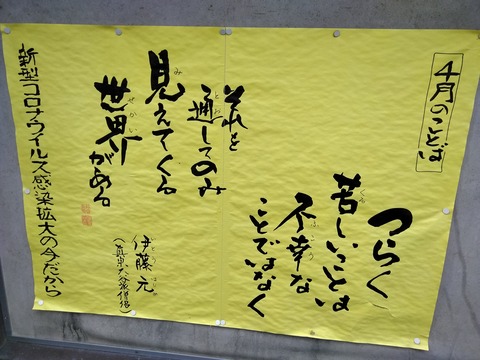 4月のことば
つらく、
苦しいことは
不幸な
ことではなく
それを
通してのみ
見えてくる
世界がある
伊藤元
(真宗大谷派僧侶)
新型コロナウイルス感染拡大の今だから